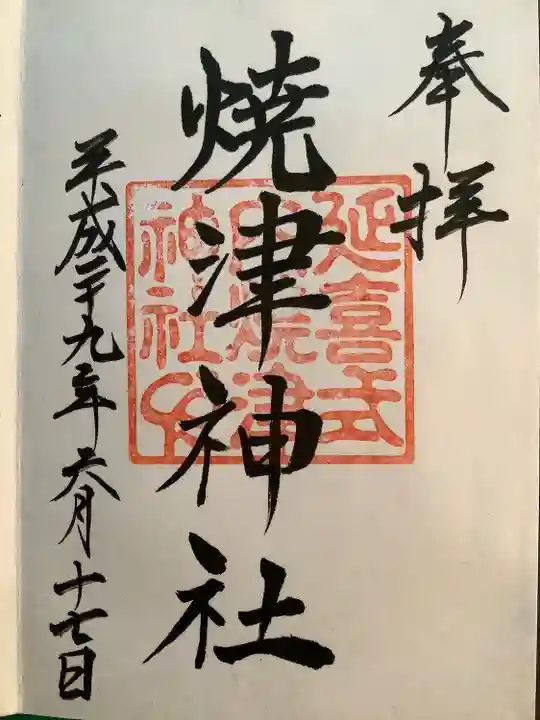 奉拝
焼津神社
延喜式
内焼津
神社印
平成二十九年六月十七日